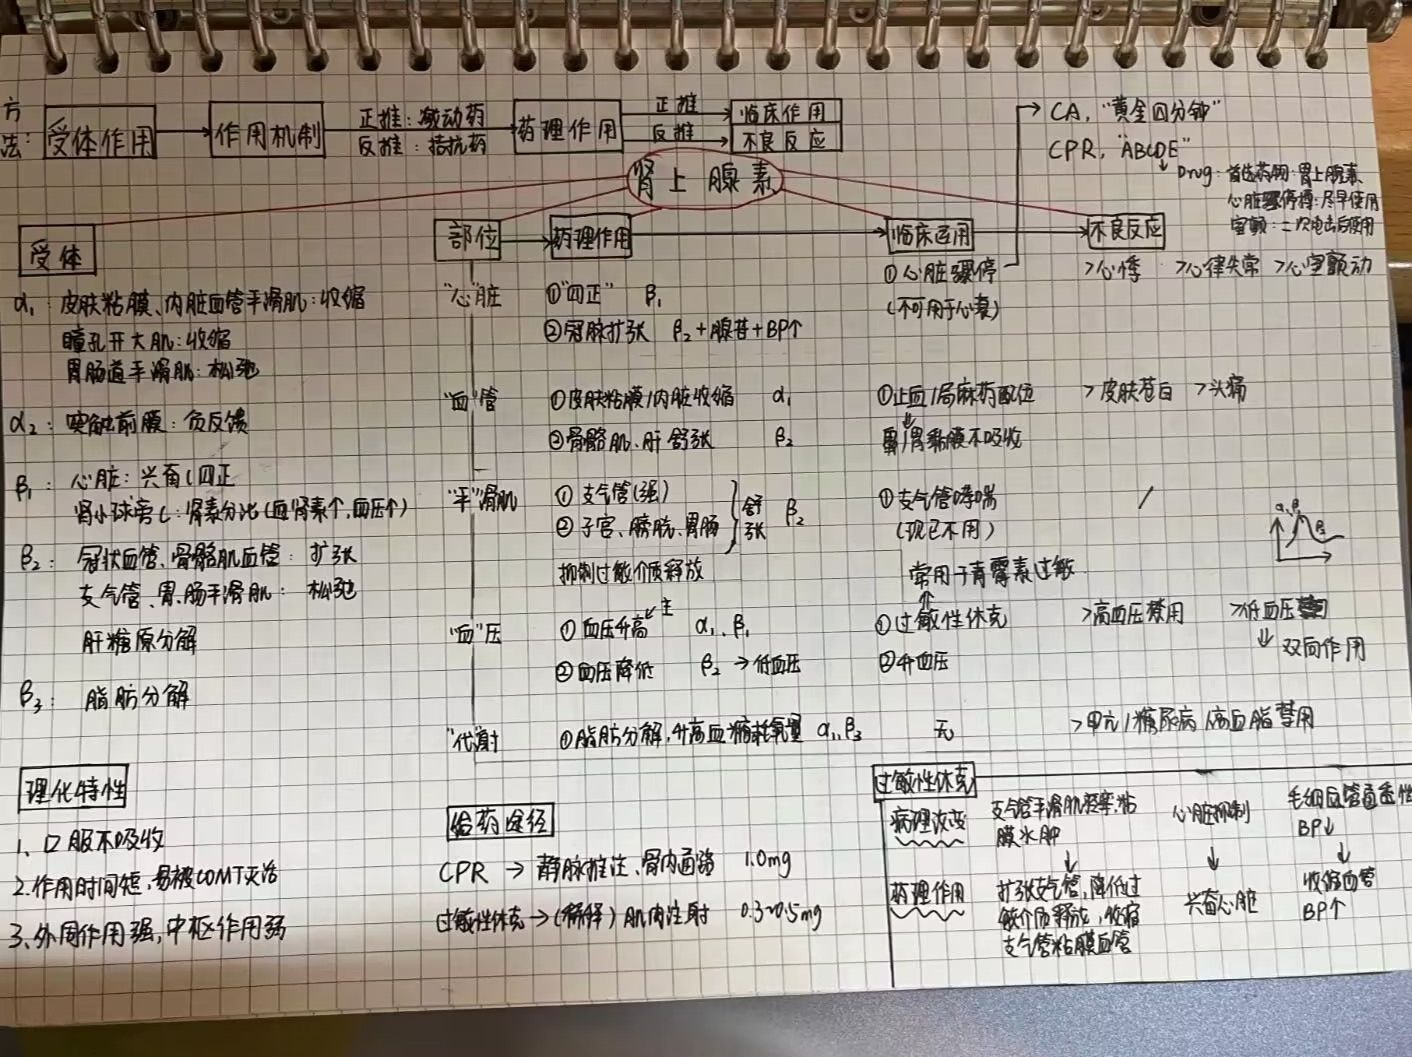 方法：
受体作用
作用机制
正推：激动药
反推：拮抗药
药理作用
正推
反推
临床作用
不良反应
CA，"黄金四分钟"
CPR，"ABCDE"
Drug：首选药物：肾上腺素
心脏骤停博：尽早使用
室颤：二次电击后使用
肾上腺素
受体
α₁：皮肤粘膜、内脏血管平滑肌：收缩
瞳孔开大肌：收缩
胃肠道平滑肌：松弛
α₂：突触前膜：负反馈
β₁：心脏：兴奋（四正
肾小球旁C：肾素分泌（血肾素↑，血压↑）
β₂：冠状血管、骨骼肌血管：扩张
支气管、胃、肠平滑肌：松弛
肝糖原分解
β₃：脂肪分解
部位
药理作用
临床运用
不良反应
"心"脏
①"四正" β₁
②冠脉扩张 β₂+腺苷+BP↑
①心脏骤停
（不可用于心衰）
>心悸 >心律失常 >心室颤动
"血"管
①皮肤粘膜/内脏收缩 α₁
②骨骼肌、肝舒张 β₂
①止血/局麻药配伍
鼻/胃黏膜不吸收
>皮肤苍白 >头痛
"平"滑肌
①支气管（强）
②子宫、膀胱、胃肠
舒张 β₂
抑制过敏介质释放
①支气管哮喘
（现已不用）
/
α₁β₁
β₂
常用于青霉素过敏
"血"压
①血压升高 主 α₁、β₁
②血压降低 β₂→低血压
①过敏性休克
②升血压
>高血压禁用 >低血压
双向作用
"代谢"
①脂肪分解，升高血糖耗氧量 α₁,β₃
无
>甲亢/糖尿病/高血脂禁用
理化特性
1、口服不吸收
2.作用时间短，易被COMT灭活
3、外周作用强，中枢作用弱
给药途径
CPR → 静脉推注、骨内通路 1.0mg
过敏性休克→（稀释）肌内注射 0.3~0.5mg
过敏性休克
病理改变
支气管平滑肌痉挛，粘膜水肿
心脏抑制
毛细血管通透性
BP↓
药理作用
扩张支气管，降低过敏介质释放，收缩支气管粘膜血管
兴奋心脏
收缩血管
BP↑